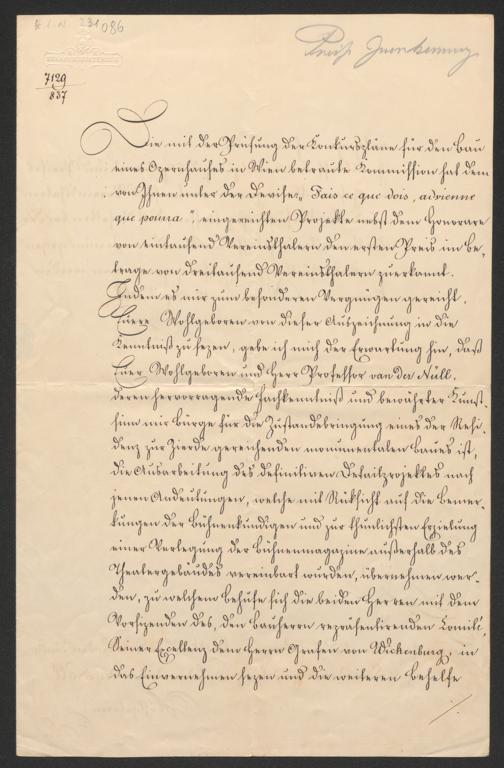 H.I.N. 231086
Preis Zuerkennung
7129
837
Die mit der Prüfung der Konkurspläne für den Bau
eines Opernhauses in Wien betraute Kommission hat dem
von Ihnen unter der Devise: „Fais ce que dois, advienne
que pourra", eingereichten Projekte nebst dem Honorare
von eintausend Vereinsthalern den ersten Preis im Be-
trage von dreitausend Vereinsthalern zuerkannt.
Indem es mir zum besonderen Vergnügen gereicht,
Euere Wohlgeboren von dieser Auszeichnung in die
Kenntniß zu sezen, gebe ich mich der Erwartung hin, daß
Euer Wohlgeboren und Herr Professor van der Nüll,
deren hervorragende Fachkenntniß und bewährter Kunst-
sinn mir Bürge für die Zustandebringung eines der Resi-
denz zur Zierde gereichenden monumentalen Baues ist,
die Ausarbeitung des definitiven Detailprojektes nach
jenen Andeutungen, welche mit Rüksicht auf die Bemer-
kungen der Bühnenkundigen und zur thunlichsten Erzielung
einer Verlegung der Bühnenmagazine außerhalb des
Theatergebäudes vereinbart wurden, übernehmen wer-
den, zu welchem Behufe sich die beiden Herren mit dem
Vorsizenden des, den Bauherrn repräsentirenden Comité,
Seiner Exzellenz dem Herrn Grafen von Wickenburg, in
das Einvernehmen sezen und die weiteren Behelfe